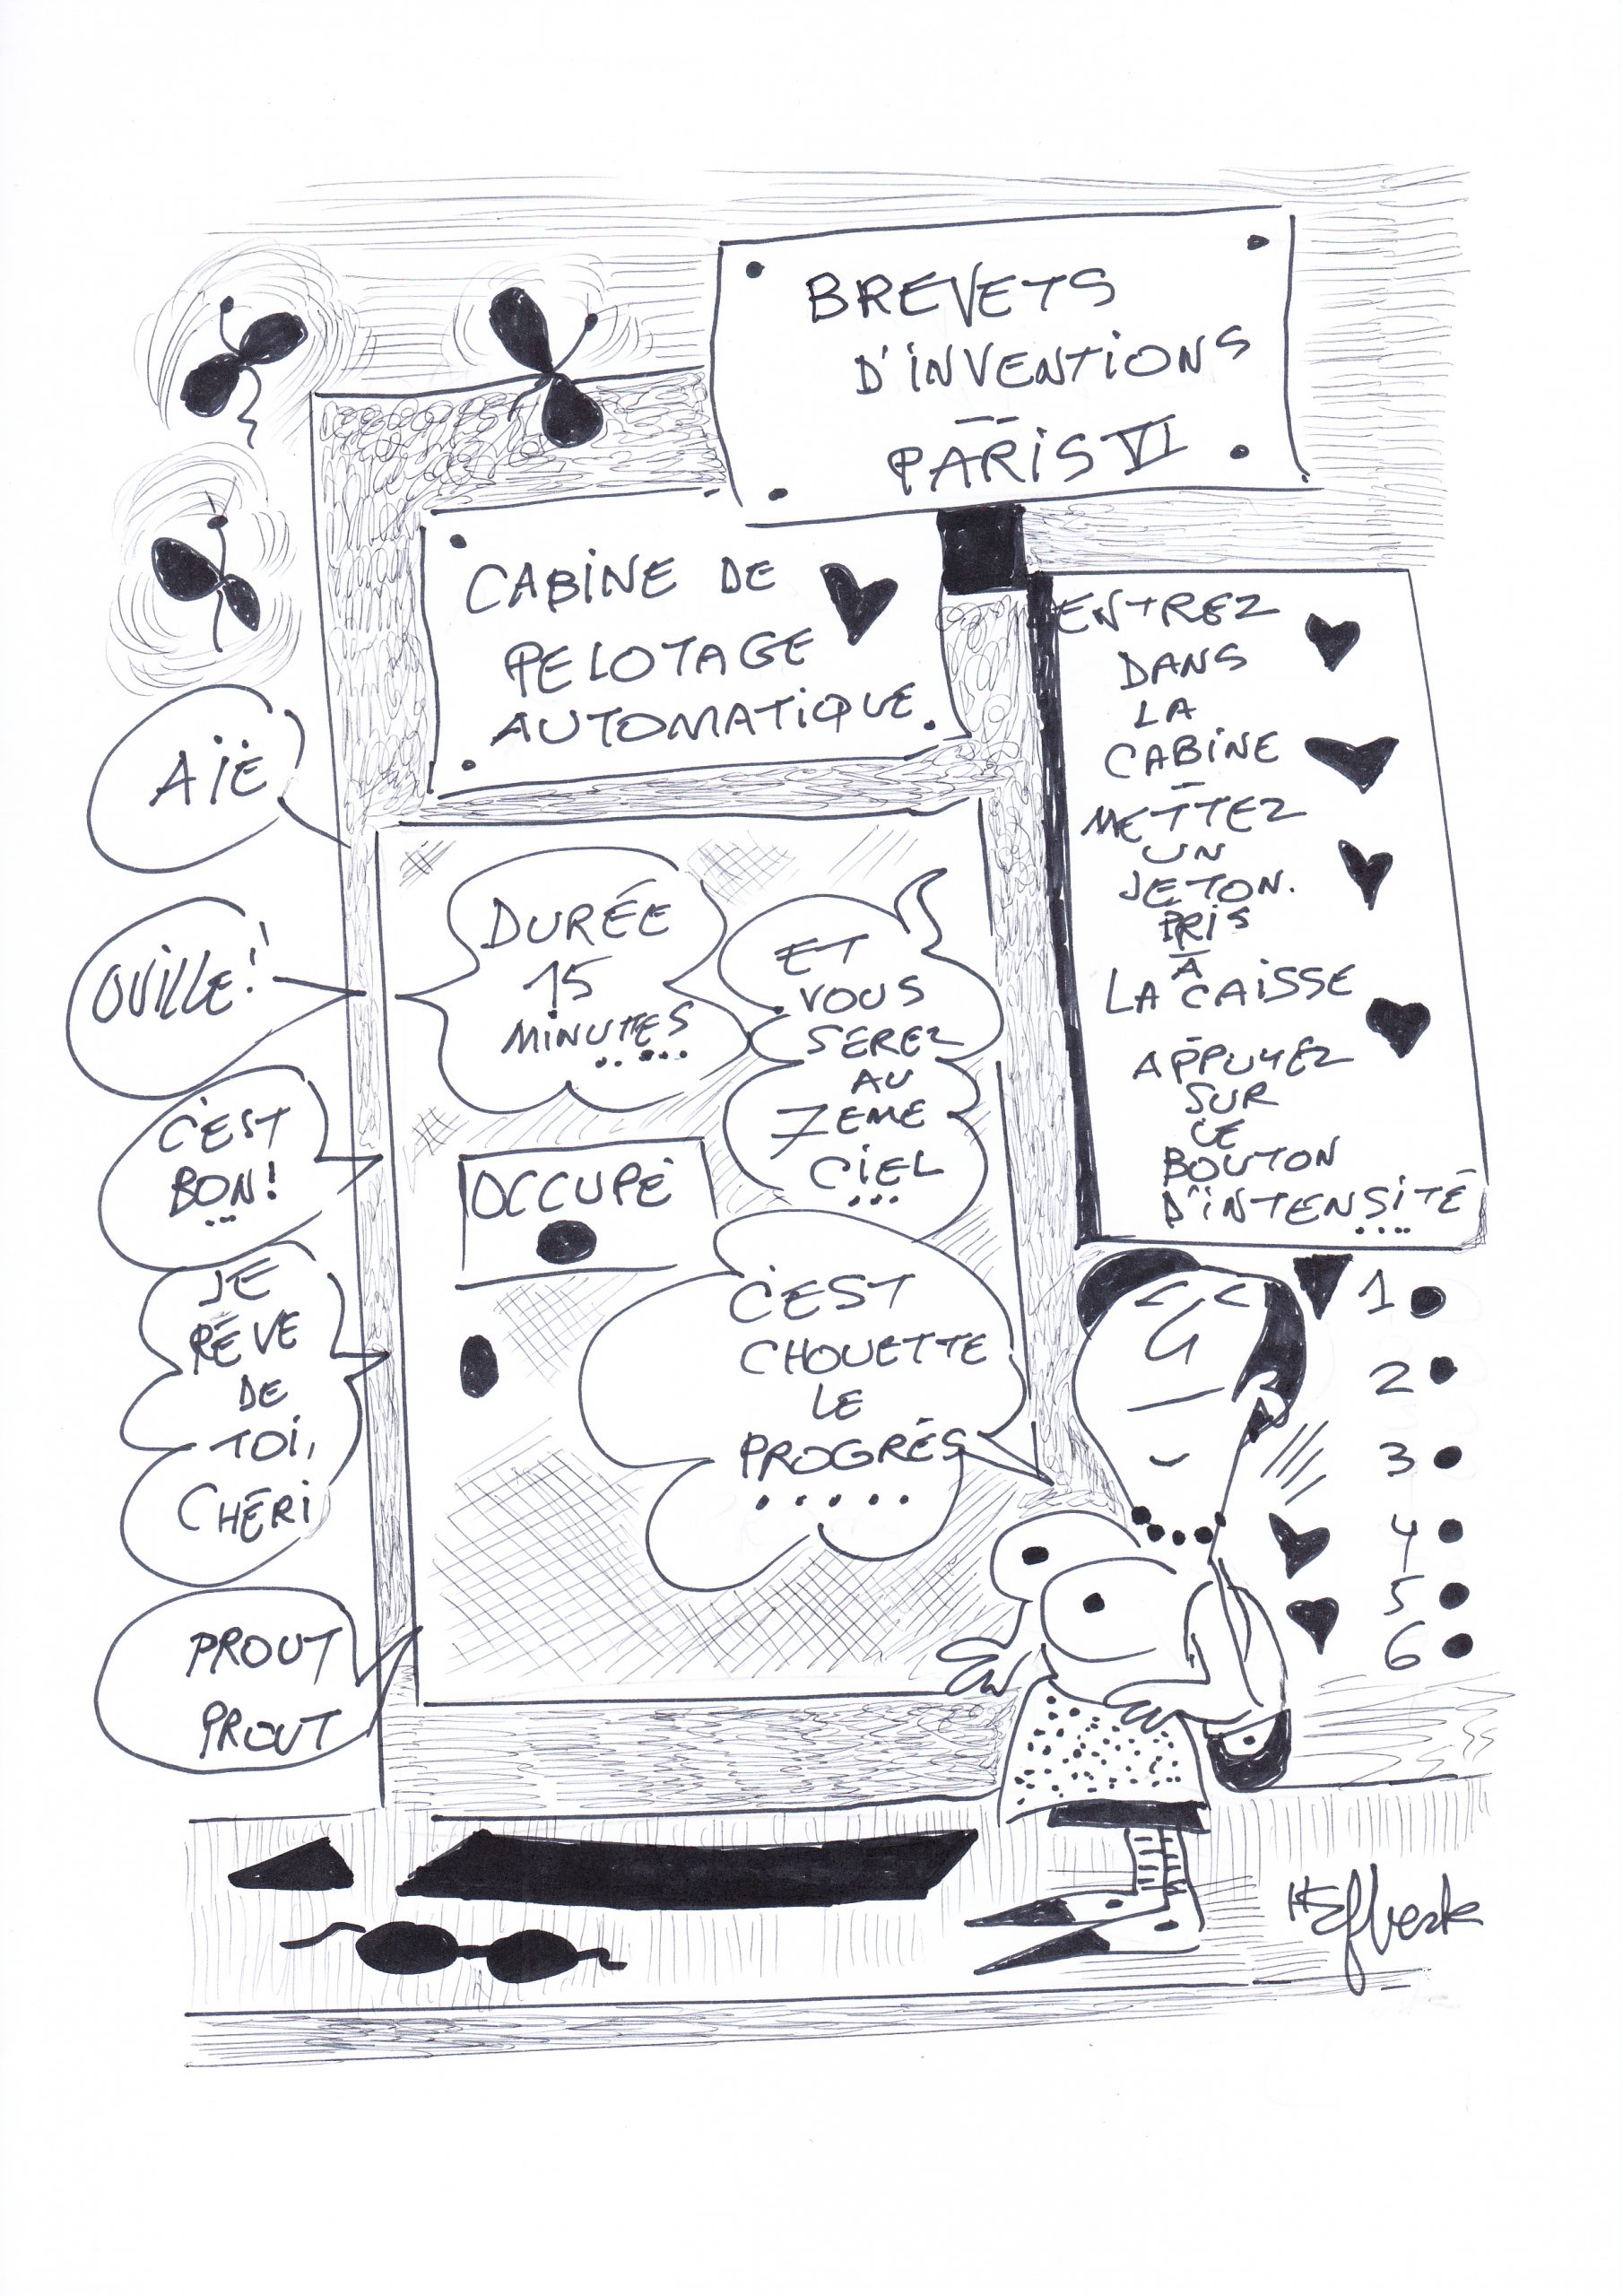 BREVETS
D'INVENTIONS
PARIS VI
CABINE DE
PELOTAGE
AUTOMATIQUE
ENTREZ
DANS
LA
CABINE
-
METTEZ
UN
JETON.
PRIS
À
LA CAISSE
APPUYEZ
SUR
LE
BOUTON
D'INTENSITÉ
....
AÏE
OUILLE!
C'EST
BON!
...
JE
RÊVE
DE
TOI,
CHÉRI
PROUT
PROUT
DURÉE
15
MINUTES
.....
ET
VOUS
SEREZ
AU
7EME
CIEL
...
OCCUPÉ
C'EST
CHOUETTE
LE
PROGRÉS
.....
1
2
3
4
5
6